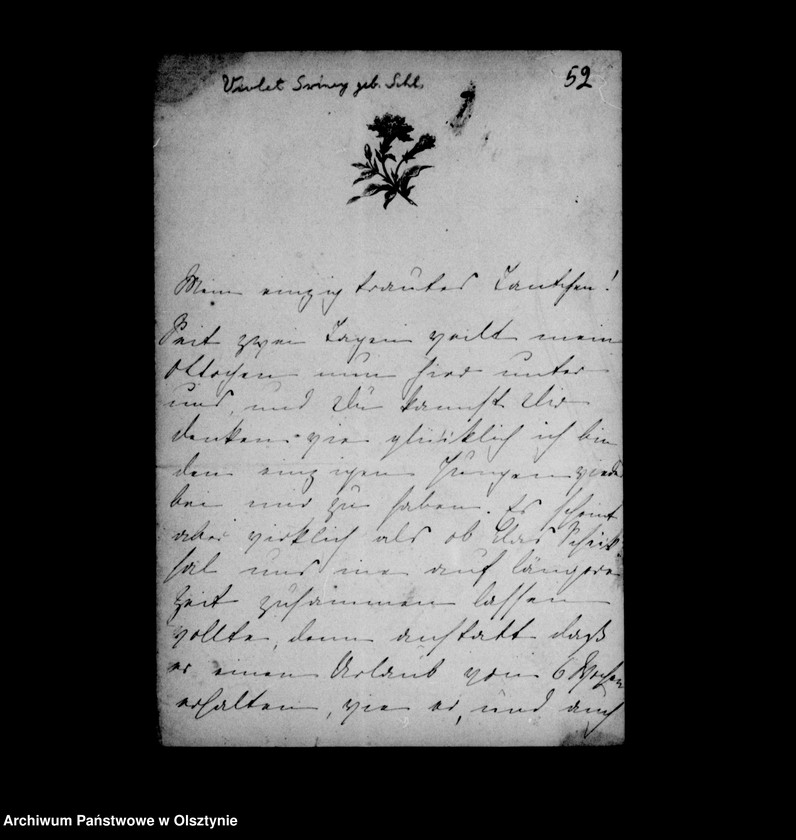 Violet geb. Schl.
52
Mein einzig trautes Tantchen!
Seit zwei Tagen weilt mein
Ottochen nun hier unter
uns, und Du kannst Dir
denken wie glücklich ich bin
den einzigen Jungen wieder
bei mir zu haben. Es scheint
aber wirklich als ob das Schick
sal uns nie auf längere
Zeit zusammen lassen
wollte, denn anstatt daß
er einen Urlaub von 6 Wochen
erhalten, wie er, und auch
Archiwum Państwowe w Olsztynie